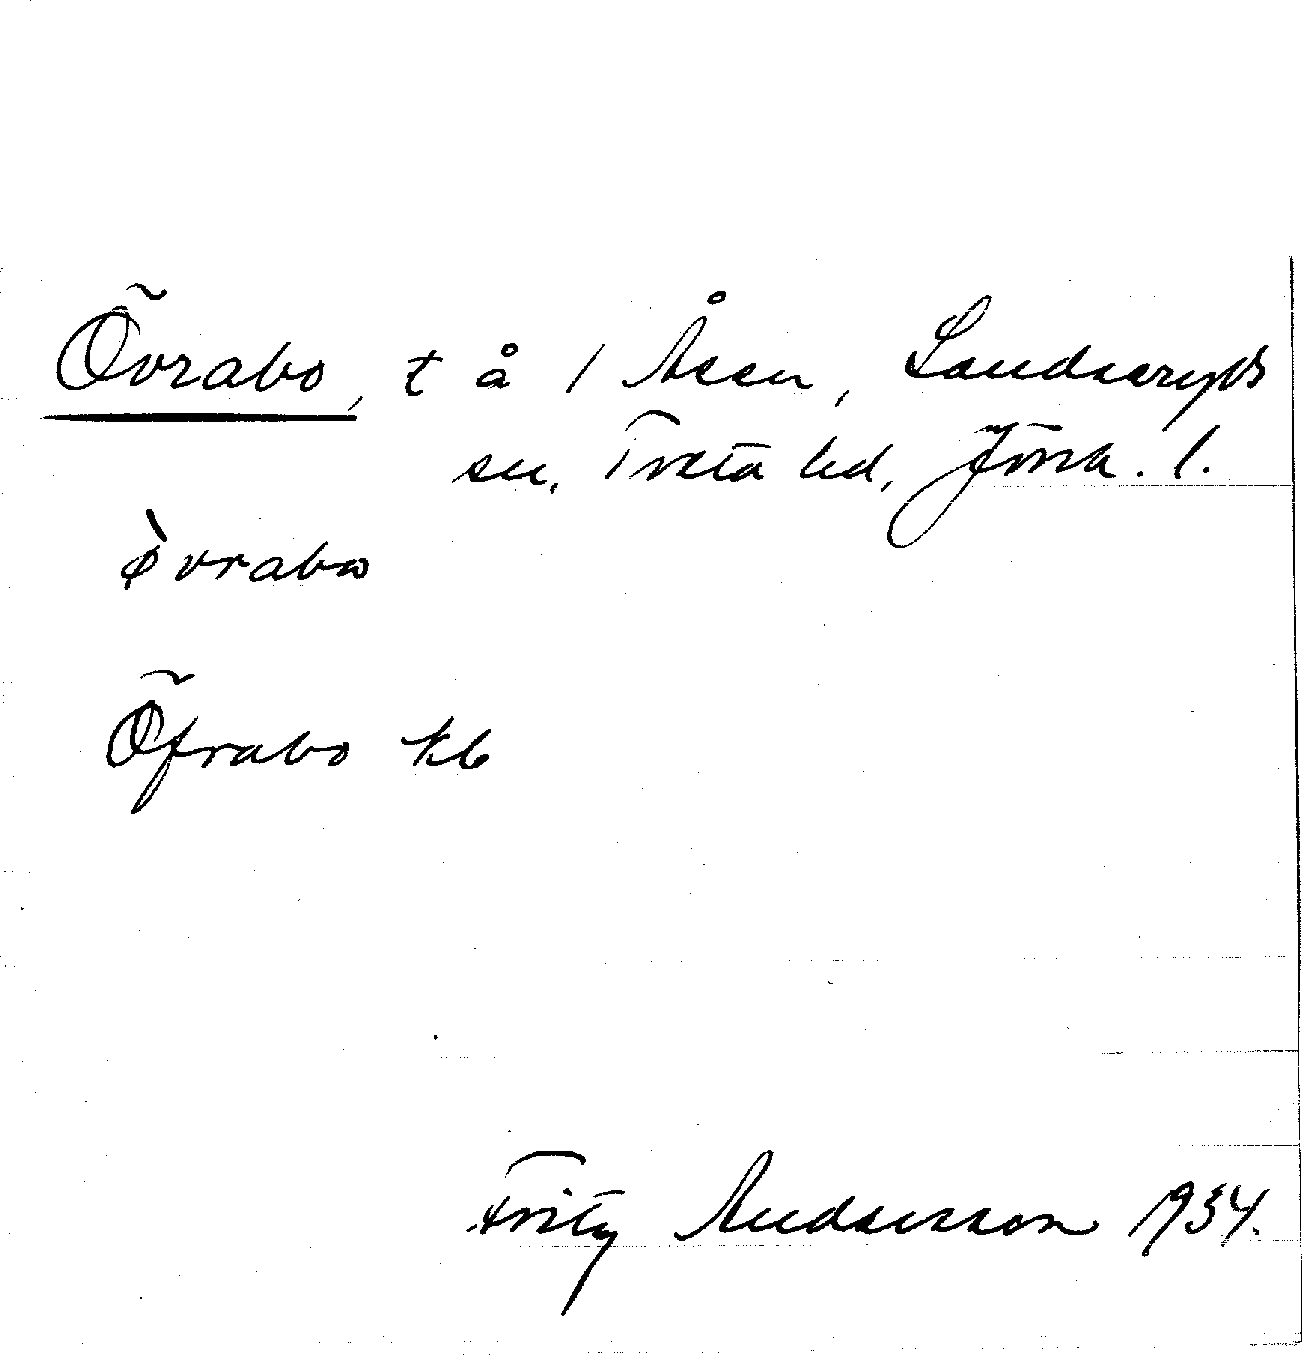 Övrabo, t å 1 Åsen, Landseryds
sn, Tveta hd, Jönk. l.
ø̀vrabω
Öfrabo kb
Fritz Andersson 1934.